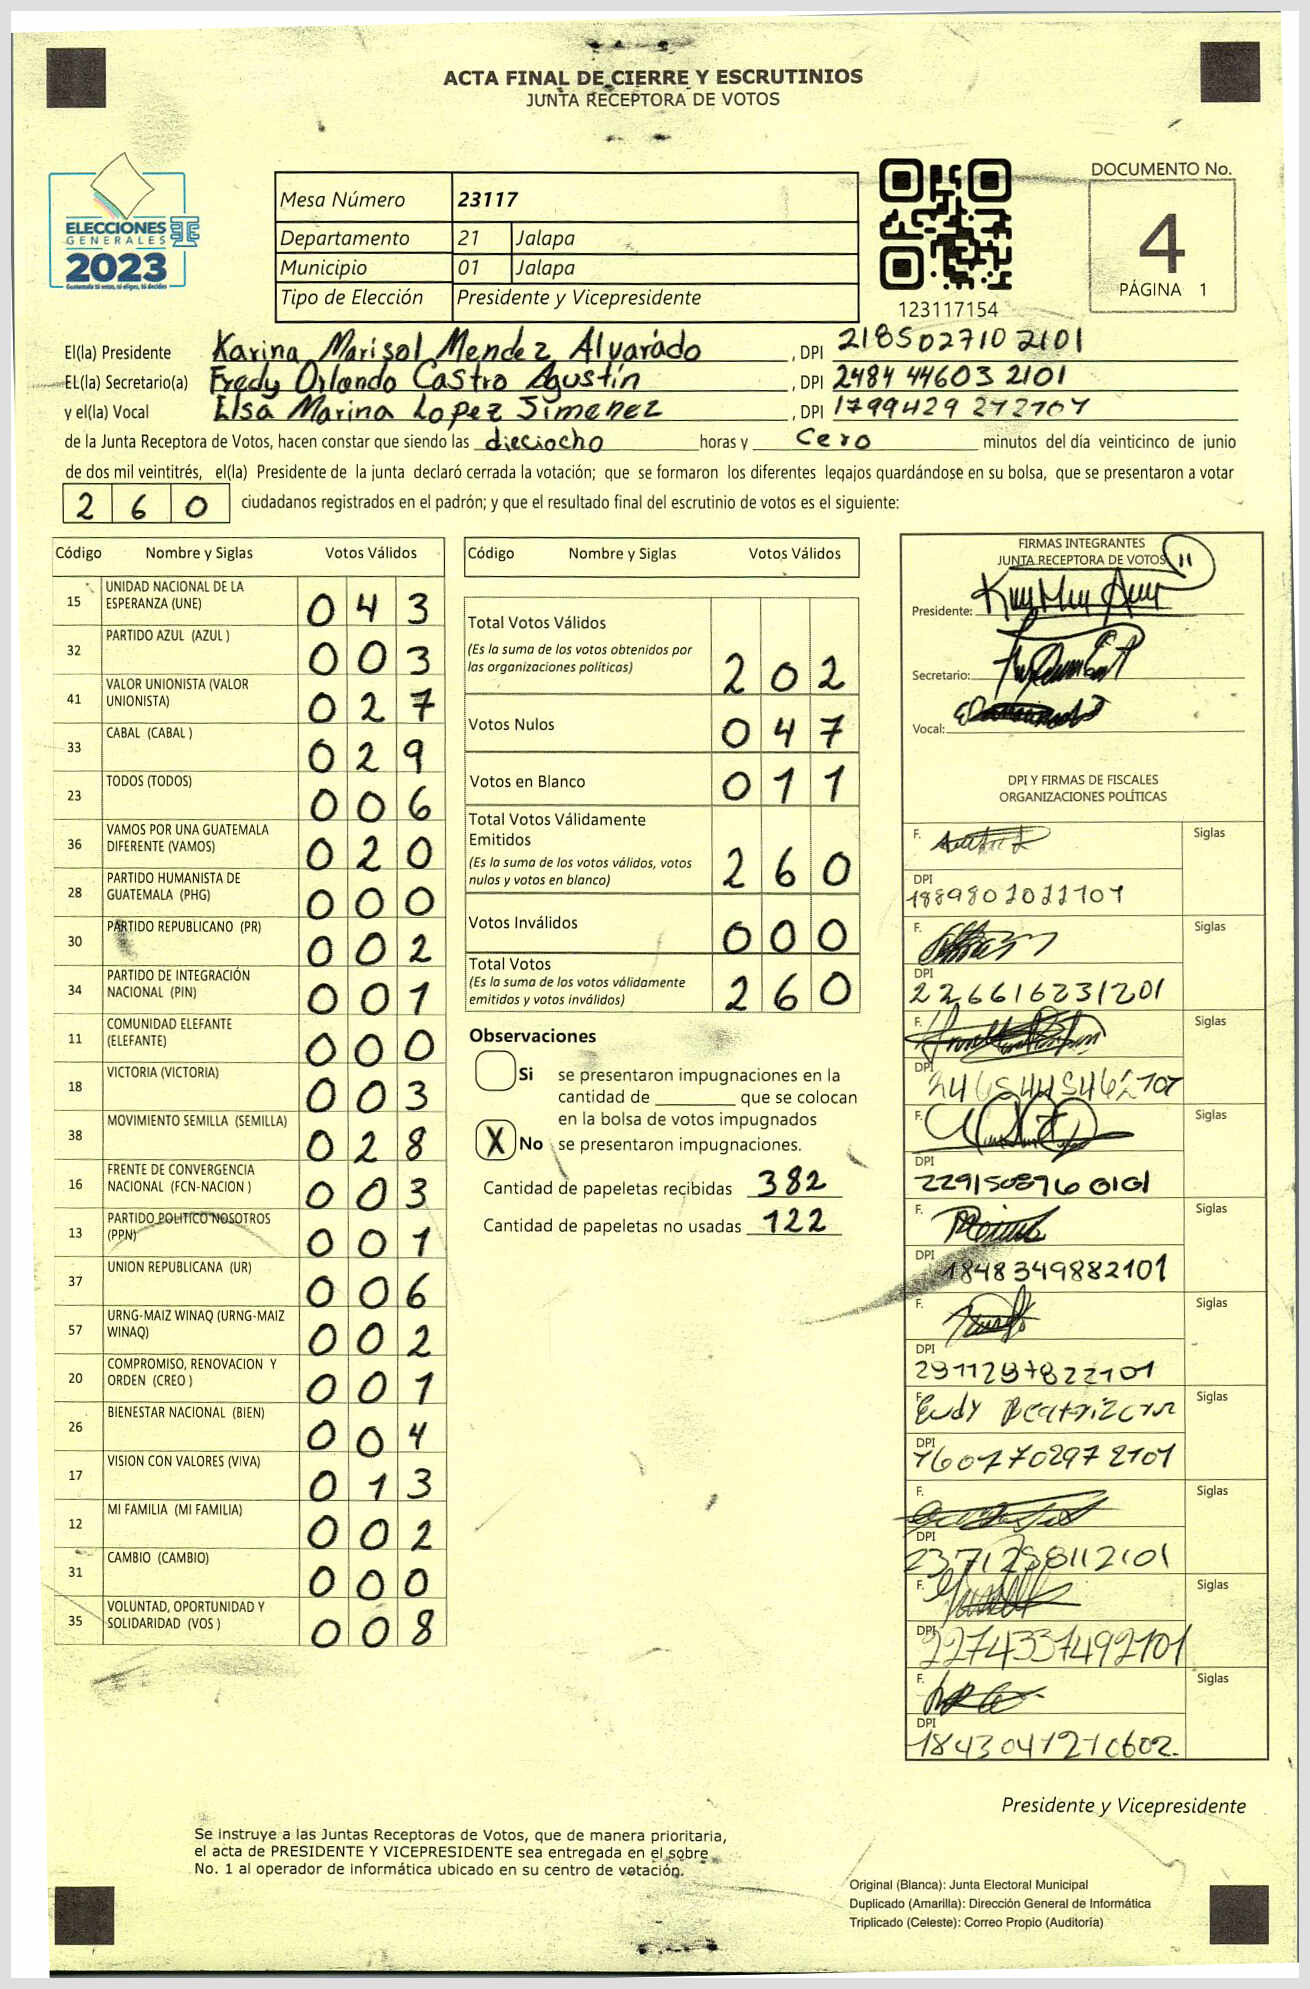 ACTA FINAL DE CIERRE Y ESCRUTINIOS
JUNTA RECEPTORA DE VOTOS
ELECCIONES
GENERALES
2023
Guatemala tú votas, tú eliges, tú decides
Mesa Número 23117
Departamento 21 Jalapa
Municipio 01 Jalapa
Tipo de Elección Presidente y Vicepresidente
123117154
DOCUMENTO No.
4
PÁGINA 1
El(la) Presidente Karina Marisol Mendez Alvarado , DPI 2185027102101
EL(la) Secretario(a) Fredy Orlando Castro Agustín , DPI 2484 44603 2101
y el(la) Vocal Elsa Marina Lopez Jimenez , DPI
de la Junta Receptora de Votos, hacen constar que siendo las dieciocho horas y cero minutos del día veinticinco de junio
de dos mil veintitrés, el(la) Presidente de la junta declaró cerrada la votación; que se formaron los diferentes legajos quardándose en su bolsa, que se presentaron a votar
260 ciudadanos registrados en el padrón; y que el resultado final del escrutinio de votos es el siguiente:
Código Nombre y Siglas Votos Válidos
15 UNIDAD NACIONAL DE LA ESPERANZA (UNE) 043
32 PARTIDO AZUL (AZUL ) 003
41 VALOR UNIONISTA (VALOR UNIONISTA) 027
33 CABAL (CABAL ) 029
23 TODOS (TODOS) 006
36 VAMOS POR UNA GUATEMALA DIFERENTE (VAMOS) 020
28 PARTIDO HUMANISTA DE GUATEMALA (PHG) 000
30 PARTIDO REPUBLICANO (PR) 002
34 PARTIDO DE INTEGRACIÓN NACIONAL (PIN) 001
11 COMUNIDAD ELEFANTE (ELEFANTE) 000
18 VICTORIA (VICTORIA) 003
38 MOVIMIENTO SEMILLA (SEMILLA) 028
16 FRENTE DE CONVERGENCIA NACIONAL (FCN-NACION ) 003
13 PARTIDO POLITICO NOSOTROS (PPN) 001
37 UNION REPUBLICANA (UR) 006
57 URNG-MAIZ WINAQ (URNG-MAIZ WINAQ) 002
20 COMPROMISO, RENOVACION Y ORDEN (CREO ) 001
26 BIENESTAR NACIONAL (BIEN) 004
17 VISION CON VALORES (VIVA) 013
12 MI FAMILIA (MI FAMILIA) 002
31 CAMBIO (CAMBIO) 000
35 VOLUNTAD, OPORTUNIDAD Y SOLIDARIDAD (VOS ) 008
Código Nombre y Siglas Votos Válidos
Total Votos Válidos
(Es la suma de los votos obtenidos por
las organizaciones políticas) 202
Votos Nulos 047
Votos en Blanco 011
Total Votos Válidamente
Emitidos
(Es la suma de los votos válidos, votos
nulos y votos en blanco) 260
Votos Inválidos 000
Total Votos
(Es la suma de los votos válidamente
emitidos y votos inválidos) 260
Observaciones
Si se presentaron impugnaciones en la
cantidad de ________ que se colocan
en la bolsa de votos impugnados
X No se presentaron impugnaciones.
Cantidad de papeletas recibidas 382
Cantidad de papeletas no usadas 122
FIRMAS INTEGRANTES
JUNTA RECEPTORA DE VOTOS
Presidente:
Secretario:
Vocal:
DPI Y FIRMAS DE FISCALES
ORGANIZACIONES POLÍTICAS
F. Siglas
DPI
F. Siglas
DPI
2266616231201
F. Siglas
DPI
F. Siglas
DPI
229150896 0101
F. Siglas
DPI
1848349882101
F. Siglas
DPI
F. Siglas
DPI
1601770297 2101
F. Siglas
DPI
2371258112101
F. Siglas
DPI
2274337492101
F. Siglas
DPI
Presidente y Vicepresidente
Se instruye a las Juntas Receptoras de Votos, que de manera prioritaria,
el acta de PRESIDENTE Y VICEPRESIDENTE sea entregada en el sobre
No. 1 al operador de informática ubicado en su centro de votación.
Original (Blanca): Junta Electoral Municipal
Duplicado (Amarilla): Dirección General de Informática
Triplicado (Celeste): Correo Propio (Auditoría)